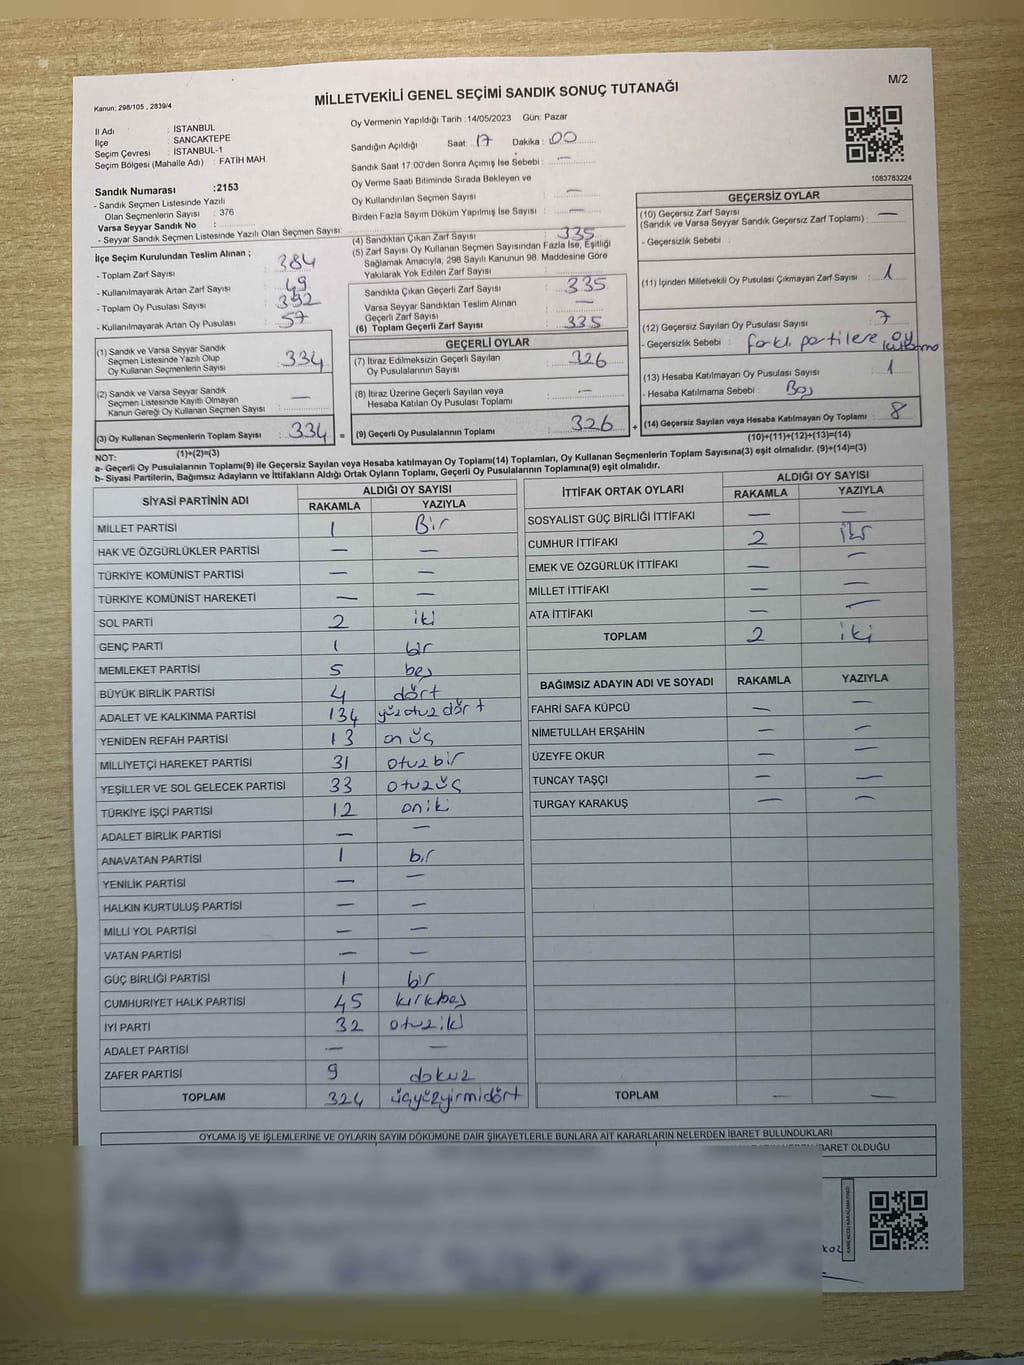 M/2
Kanun: 298/105 , 2839/4
MİLLETVEKİLİ GENEL SEÇİMİ SANDIK SONUÇ TUTANAĞI
İl Adı : İSTANBUL
İlçe : SANCAKTEPE
Seçim Çevresi : İSTANBUL-1
Seçim Bölgesi (Mahalle Adı) : FATİH MAH.
Sandık Numarası :2153
- Sandık Seçmen Listesinde Yazılı
Olan Seçmenlerin Sayısı : 376
Varsa Seyyar Sandık No :
- Seyyar Sandık Seçmen Listesinde Yazılı Olan Seçmen Sayısı:
Oy Vermenin Yapıldığı Tarih :14/05/2023 Gün: Pazar
Sandığın Açıldığı Saat: 17 Dakika : 00
Sandık Saat 17:00'den Sonra Açımış İse Sebebi : —
Oy Verme Saati Bitiminde Sırada Bekleyen ve
Oy Kullandırılan Seçmen Sayısı : —
Birden Fazla Sayım Döküm Yapılmış İse Sayısı : —
1083783224
İlçe Seçim Kurulundan Teslim Alınan ;
- Toplam Zarf Sayısı : 384
- Kullanılmayarak Artan Zarf Sayısı : 49
- Toplam Oy Pusulası Sayısı : 392
- Kullanılmayarak Artan Oy Pusulası : 57
(1) Sandık ve Varsa Seyyar Sandık
Seçmen Listesinde Yazılı Olup
Oy Kullanan Seçmenlerin Sayısı : 334
(2) Sandık ve Varsa Seyyar Sandık
Seçmen Listesinde Kayıtlı Olmayan
Kanun Gereği Oy Kullanan Seçmen Sayısı : —
(3) Oy Kullanan Seçmenlerin Toplam Sayısı : 334
(1)+(2)=(3)
(4) Sandıktan Çıkan Zarf Sayısı : 335
(5) Zarf Sayısı Oy Kullanan Seçmen Sayısından Fazla İse, Eşitliği
Sağlamak Amacıyla, 298 Sayılı Kanunun 98. Maddesine Göre
Yakılarak Yok Edilen Zarf Sayısı :
Sandıkta Çıkan Geçerli Zarf Sayısı : 335
Varsa Seyyar Sandıktan Teslim Alınan
Geçerli Zarf Sayısı : —
(6) Toplam Geçerli Zarf Sayısı : 335
GEÇERLİ OYLAR
(7) İtiraz Edilmeksizin Geçerli Sayılan
Oy Pusulalarının Sayısı : 326
(8) İtiraz Üzerine Geçerli Sayılan veya
Hesaba Katılan Oy Pusulası Toplamı : —
= (9) Geçerli Oy Pusulalarının Toplamı : 326
GEÇERSİZ OYLAR
(10) Geçersiz Zarf Sayısı : —
(Sandık ve Varsa Seyyar Sandık Geçersiz Zarf Toplamı)
- Geçersizlik Sebebi :
(11) İçinden Milletvekili Oy Pusulası Çıkmayan Zarf Sayısı : 1
(12) Geçersiz Sayılan Oy Pusulası Sayısı : 7
- Geçersizlik Sebebi : farklı partilere oy
(13) Hesaba Katılmayan Oy Pusulası Sayısı : 1
- Hesaba Katılmama Sebebi : Boş
+ (14) Geçersiz Sayılan veya Hesaba Katılmayan Oy Toplamı : 8
(10)+(11)+(12)+(13)=(14)
NOT:
a- Geçerli Oy Pusulalarının Toplamı(9) ile Geçersiz Sayılan veya Hesaba katılmayan Oy Toplamı(14) Toplamları, Oy Kullanan Seçmenlerin Toplam Sayısına(3) eşit olmalıdır. (9)+(14)=(3)
b- Siyasi Partilerin, Bağımsız Adayların ve İttifakların Aldığı Ortak Oyların Toplamı, Geçerli Oy Pusulalarının Toplamına(9) eşit olmalıdır.
SİYASİ PARTİNİN ADI ALDIĞI OY SAYISI
RAKAMLA YAZIYLA
MİLLET PARTİSİ 1 Bir
HAK VE ÖZGÜRLÜKLER PARTİSİ — —
TÜRKİYE KOMÜNİST PARTİSİ — —
TÜRKİYE KOMÜNİST HAREKETİ — —
SOL PARTİ 2 iki
GENÇ PARTİ 1 bir
MEMLEKET PARTİSİ 5 beş
BÜYÜK BİRLİK PARTİSİ 4 dört
ADALET VE KALKINMA PARTİSİ 134 yüzotuz dört
YENİDEN REFAH PARTİSİ 13 on üç
MİLLİYETÇİ HAREKET PARTİSİ 31 otuzbir
YEŞİLLER VE SOL GELECEK PARTİSİ 33 otuzüç
TÜRKİYE İŞÇİ PARTİSİ 12 oniki
ADALET BİRLİK PARTİSİ — —
ANAVATAN PARTİSİ 1 bir
YENİLİK PARTİSİ — —
HALKIN KURTULUŞ PARTİSİ — —
MİLLİ YOL PARTİSİ — —
VATAN PARTİSİ — —
GÜÇ BİRLİĞİ PARTİSİ 1 bir
CUMHURİYET HALK PARTİSİ 45 kırkbeş
İYİ PARTİ 32 otuziki
ADALET PARTİSİ — —
ZAFER PARTİSİ 9 dokuz
TOPLAM 324 üçyüzyirmidört
İTTİFAK ORTAK OYLARI ALDIĞI OY SAYISI
RAKAMLA YAZIYLA
SOSYALİST GÜÇ BİRLİĞİ İTTİFAKI — —
CUMHUR İTTİFAKI 2 iki
EMEK VE ÖZGÜRLÜK İTTİFAKI — —
MİLLET İTTİFAKI — —
ATA İTTİFAKI — —
TOPLAM 2 iki
BAĞIMSIZ ADAYIN ADI VE SOYADI RAKAMLA YAZIYLA
FAHRİ SAFA KÜPCÜ — —
NİMETULLAH ERŞAHİN — —
ÜZEYFE OKUR — —
TUNCAY TAŞÇI — —
TURGAY KARAKUŞ — —
TOPLAM — —
OYLAMA İŞ VE İŞLEMLERİNE VE OYLARIN SAYIM DÖKÜMÜNE DAİR ŞİKAYETLERLE BUNLARA AİT KARARLARIN NELERDEN İBARET BULUNDUKLARI
İBARET OLDUĞU